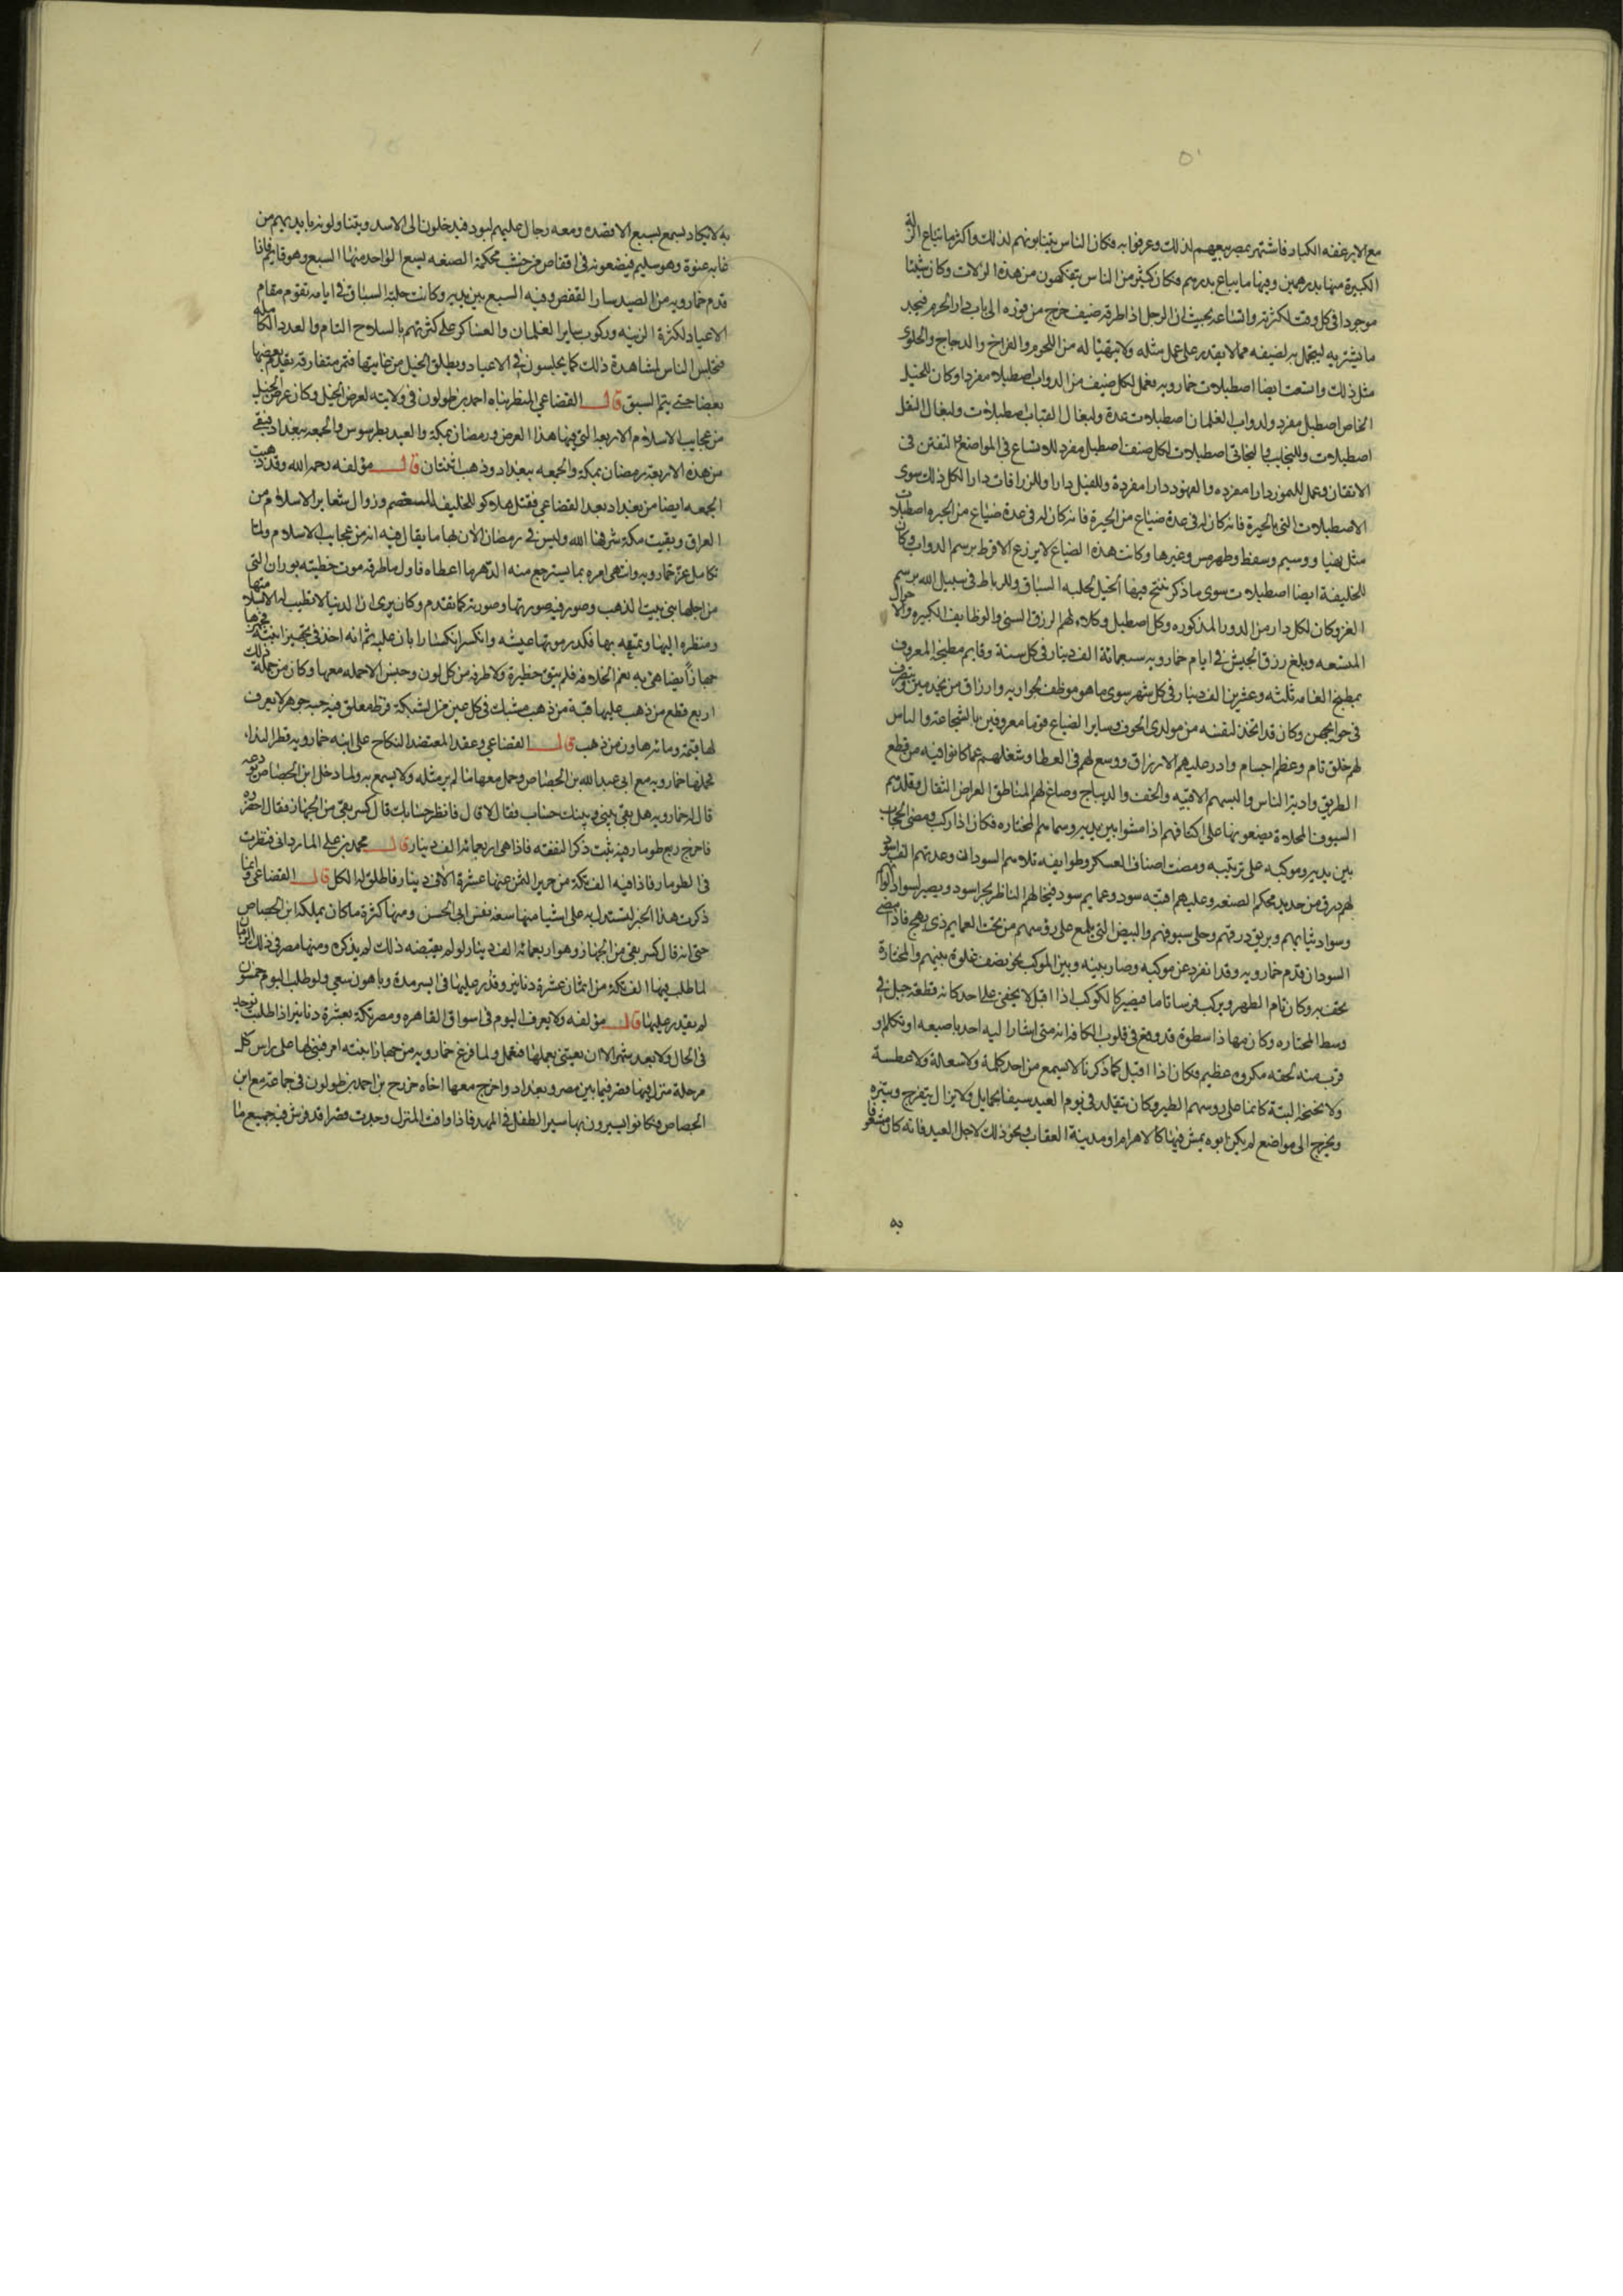 ٥٠
مع الارغفه الكبار فاشتهر بمصر بيعهم لذلك وعرفوا به فكان الناس يتناوبونهم لذلك واكثر ما تباع الزلة
الكبيرة منها بدرهمين وفيها ما يباع بدرهم فكان كثير من الناس يتفكهون من هذه الزلات وكان شيئا
موجودا في كل وقت لكثرته واتساعه بحيث ان الرجل اذا طرقه ضيف خرج من فوره الى باب دار الحرم فيجد
ما يشتريه ليتجمل به لضيفه مما لا يقدر على عمل مثله ولا يتهيا له من اللحوم والفراخ والدجاج والحلوى
مثل ذلك واتسعت ايضا اصطبلات خمارويه فعمل لكل صنف من الدواب اصطبلا مفردا وكان للخيل
الخاص اصطبل مفرد ولدواب الغلمان اصطبلات عدة ولبغال القباب اصطبلات ولبغال النقل
اصطبلات وللنجايب والبخاتي اصطبلات لكل صنف اصطبل مفرد للاتساع في المواضع والتفنن في
الاتقان وعمل للنمور دارا مفرده والفهود دارا مفردة وللفيل دارا وللزرافات دارا لكل ذلك سوى
الاصطبلات التي بالجيزة فانه كان له في عدة ضياع من الجيزة فانه كان له في عدة ضياع من الجيزه اصطبلات
مثل نهيا ووسيم وسفط وطهرمس وغيرها وكانت هذه الضياع لا يزرع الا القرط برسم الدواب وكان
للخليفة ايضا اصطبلات سوى ما ذكر ننتج فيها الخيل لحلبه السباق وللرباط في سبيل الله برسم
الغزو وكان لكل دار من الدور المذكوره وكل اصطبل وكلاء لهم الرزق السني والوظايف الكبيره والاموال
المتسعه وبلغ رزق الجيش في ايام خمارويه سبعمائة الف دينار في كل سنة وقام مطبخه المعروف
بمطبخ العامه ثلثه وعشرين الف دينار في كل شهر سوى ما هو موظف لجواريه وارزاق من يخدمهن ويتصرف
في حوايجهن وكان قد اتخذ لنفسه من مولدي الحوف وساير الضياع قوما معروفين بالشجاعة والباس
لهم خلق تام وعظم اجسام وادر عليهم الارزاق ووسع لهم في العطا وشغلهم عما كانوا فيه من قطع
الطريق واذية الناس والبسهم الاقبيه والخفت والديباج وصاغ لهم المناطق العراض الثقال وقلدهم
السيوف المحلاة يضعونها على اكتافهم اذا مشوا بين يديه وسماهم المختاره فكان اذا ركب ومضى الحجاب
بين يديه وموكبه على ترتيبه ومضت اصناف العسكر وطوايفه تلاهم السودان وعدتهم الف اسود
لهم درق من حديد محكم الصنعه وعليهم اقبيه سود وعمايم سود فيخالهم الناظر بحرا اسود ويصير لسواد الوانهم
وسواد ثيابهم وبريق درقهم وحلي سيوفهم والبيض التي تلمع على روسهم من تحت العمايم ذي وهج فاذا مضى
السودان قدم خمارويه وقد انفرد عن موكبه وصار بينه وبين الموكب نحو نصف غلوة سهم والمختارة
تحف به وكان تام الظهر ويركب فرسا تاما فيصير كالكوكب اذا اقبل لا يخفى على احد كانه قطعة جبل في
وسط المختاره وكان مهابا ذا سطوة قد وقع في قلوب الكافة انه متى اشار اليه احد باصبعه او تكلم او
قرب منه لحقه مكروه عظيم فكان اذا اقبل كما ذكرنا لا يسمع من احد كلمة ولا سعاله ولا عطسة
ولا نحنحة البتة كانما على روسهم الطير وكان يتقلد في يوم العيد سيفا بحمايل ولا يزال يتفرج ويتنزه
ويخرج الى مواضع لم يكن ابوه يمش فيها كالاهرام ومدينة العقاب ونحو ذلك لاجل الصيد فانه كان مشغوفا
به
به لا يكاد يسمع بسبع الا قصده ومعه رجال عليهم لبود فيدخلون الى الاسد ويتناولونه بايديهم من
غابه عنوة وهو سليم فيضعونه في اقفاص من خشب محكمة الصنعه يسع الواحد منها السبع وهو قايم فاذا
قدم خمارويه من الصيد سار القفص وفيه السبع بين يديه وكانت حلبة السباق في ايامه تقوم مقام
الاعياد لكثرة الزينه وركوب ساير الغلمان والعساكر على كثرتهم بالسلاح التام والعدد الكامله
فتجلس الناس لمشاهدة ذلك كما يجلسون في الاعياد ويطلق الخيل من غايتها فتمر متفارقه يقدم بعضها
بعضا حتى يتم السبق قال القضاعي المنظر بناه احمد بن طولون في ولايته لعرض الخيل وكان عرض الخيل
من عجايب الاسلام الاربعة التي فيها هذا العرض ورمضان بمكة والعيد بطرسوس والجمعه ببغداد فبقي
من هذه الاربعة رمضان بمكة والجمعه ببغداد وذهب اثنتان قال مؤلفه رحمه الله وقد ذهبت
الجمعه ايضا من بغداد بعد القضاعي فقتل هلاكو للخليفه المستعصم وزوال شعاير الاسلام من
العراق وبقيت مكة شرفها الله وليس في رمضان الان بها ما يقال فيه انه من عجايب الاسلام ولما
تكامل عز خمارويه وانتهى امره بدا يسترجع منه الدهر ما اعطاه فاول ما طرقه موت حظيته بوران التي
من اجلها بنى بيت الذهب وصور فيه صورتها وصورته كما تقدم وكان يرى ان الدنيا لا تطيب له الا بسلامتها
ومنظره اليها وتمتعه بها فكدر موتها عيشه وانكسر انكسارا بان عليه ثم انه اخذ في تجهيز ابنته فجهزها
جهازا يضاهي به نعم الخلافه فلم يبق حظيرة ولا طرفه من كل لون وجنس الا حمله معها وكان من جملة ذلك
اربع قطع من ذهب عليها قبة من ذهب مشبك في كل عين من الشبكة قرط معلق فيه حبه جوهر لا يعرف
لها قيمة ومائه هاون من ذهب قال القضاعي وعقد المعتضد النكاح على ابنه خمارويه قطر الندا،
فحملها خمارويه مع ابي عبد الله بن الجصاص وحمل معها ما لم ير مثله ولا يسمع به ولما دخل ابن الجصاص يودعه
قال له خمارويه هل بقي بيني وبينك حساب فقال لا قال فانظر حسابك قال كسر بقي من الجهاز فقال احضروه
فاخرج ربع طومار فيه ثبت ذكر النفقه فاذا هي اربعمائه الف دينار قال محمد بن علي المارداني فنظرت
في الطومار فاذا فيه الف تكة من حرير الثمن عنها عشرة الاف دينار فاطلق له الكل قال القضاعي وانما
ذكرت هذا الخبر ليستدل به على اشيا منها سعة نفس ابي الحسن ومنها كثرة ما كان يملكه ابن الجصاص
حتى انه قال كسر بقي من الجهاز وهو اربعمائه الف دينار لو لم يقتضه ذلك لم يذكره ومنها مصر في ذلك الزمان
لما طلب فيها الف تكة من اثمان عشرة دنانير وقدر عليها في ايسر مدة وباهون سعي ولو طلب اليوم خمسون
لم يقدر عليها قال مؤلفه ولا يعرف اليوم في اسواق القاهره ومصر تكة بعشرة دنانير اذا طلبت توجد
في الحال ولا بعد شهر الا ان يعتني بعملها فتعمل ولما فرغ خمارويه من جهاز ابنته امر فبنى لها على راس كل
مرحلة منزل فيها قصر فيما بين مصر وبغداد واخرج معها اخاه خزرج بن احمد بن طولون في جماعة مع ابن
الجصاص وكانوا يسيرون بها سير الطفل في المهد فاذا وافت المنزل وجدت قصرا قد فرش فيه جميع ما